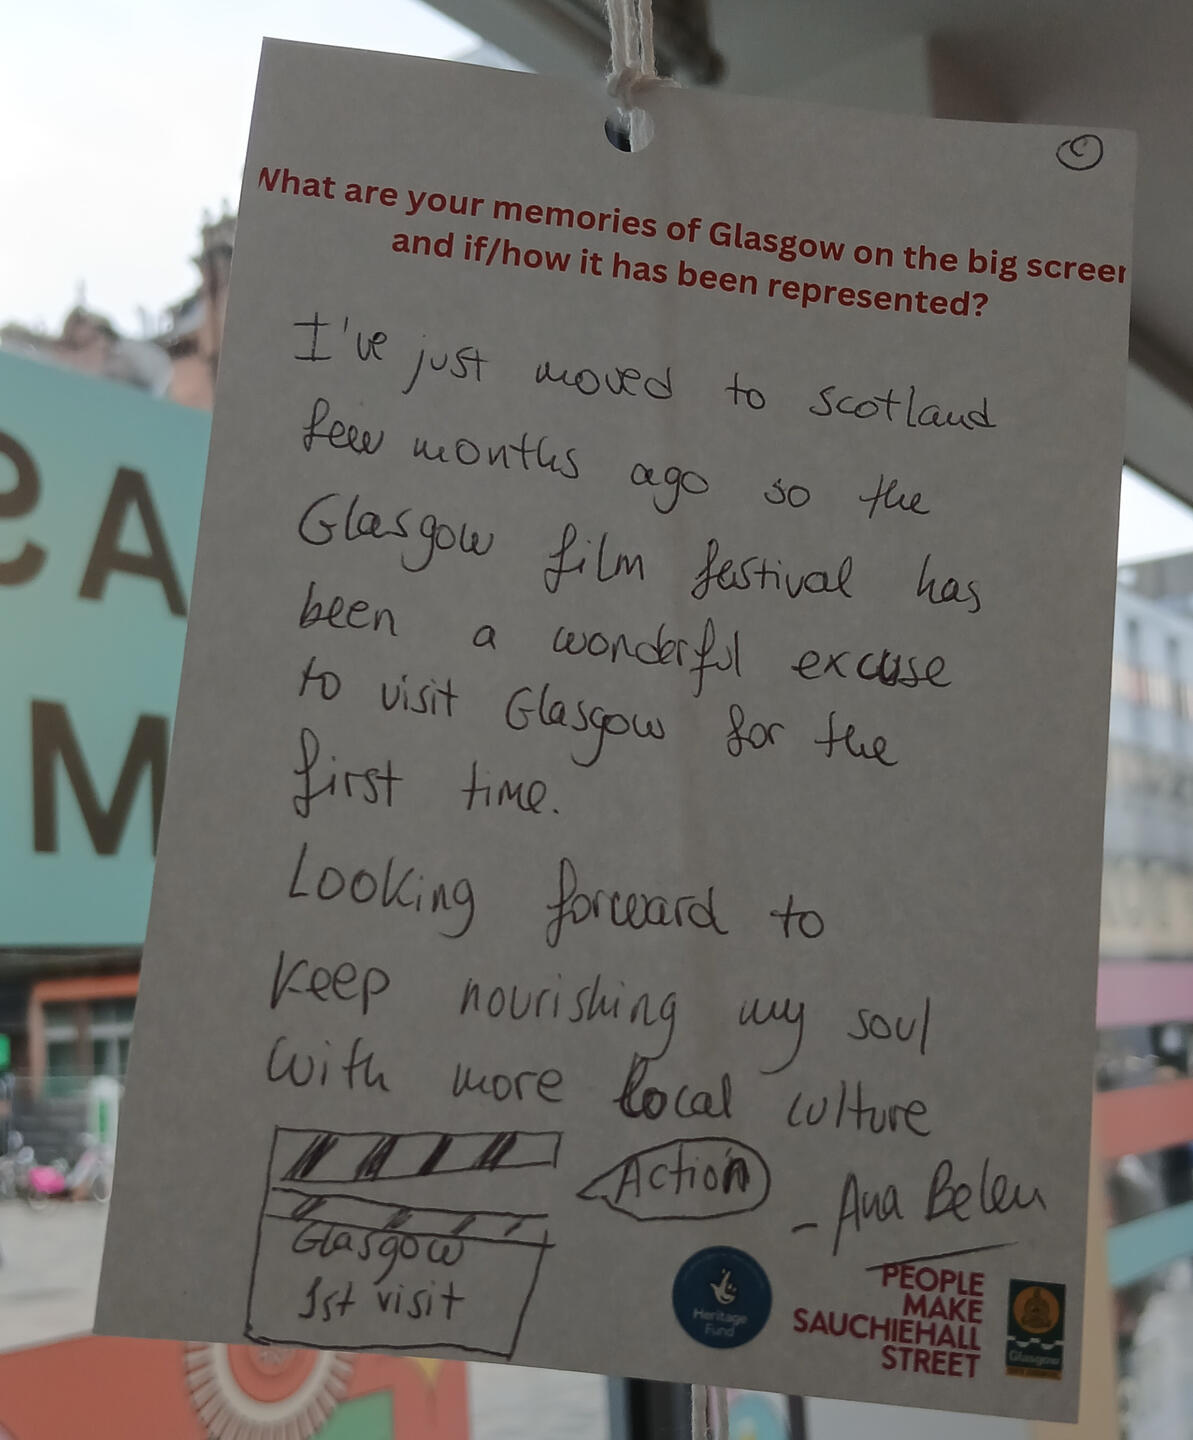 What are your memories of Glasgow on the big screen
and if/how it has been represented?
I've just moved to Scotland
few months ago so the
Glasgow film festival has
been a wonderful excuse
to visit Glasgow for the
first time.
Looking forward to
keep nourishing my soul
with more local culture
Action
- Ana Belen
Glasgow
1st visit
Heritage
Fund
PEOPLE
MAKE
SAUCHIEHALL
STREET
Glasgow
eA
M